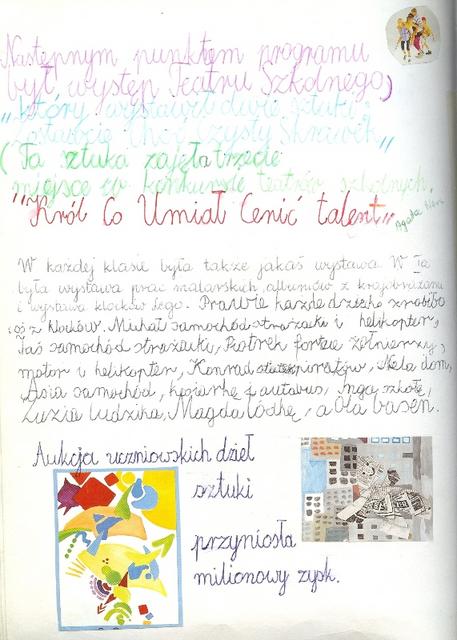 Następnym punktem programu
był występ Teatru Szkolnego,
który wystawił dwie sztuki:
"Zostawcie Choć Czysty Skrawek"
(Ta sztuka zajęła trzecie
miejsce w konkursie teatrów szkolnych.
"Król Co Umiał Cenić talent"
Agata
W każdej klasie była także jakaś wystawa. W Ia
była wystawa prac malarskich, albumów z krajobrazami
i wystawa klocków Lego. Prawie każde dziecko zrobiło
coś z klocków. Michał samochód strażacki i helikopter,
Jaś samochód strażacki, Piotrek fortecę żołnierzy,
motor i helikopter, Konrad statek piratów, Hela dom,
Asia samochód, koparkę i autobus, Inga szkołę,
Zuzia ludzika, Magda łódkę, a Ola basen.
Aukcja uczniowskich dzieł
sztuki
przyniosła
milionowy zysk.